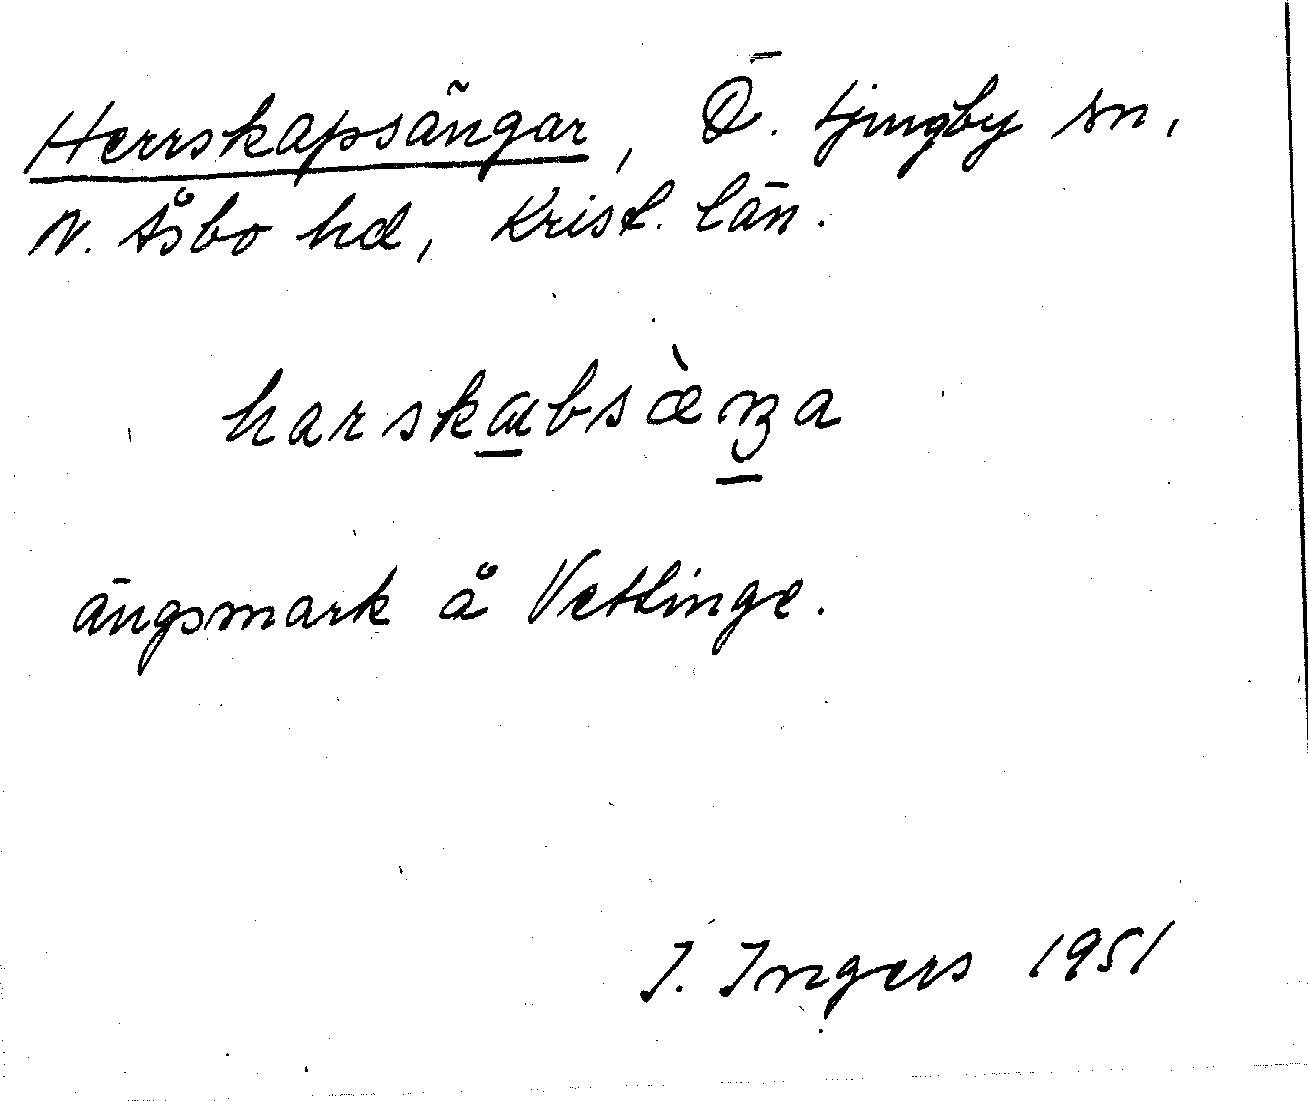 Herrskapsängar, Ö. Ljungby sn,
N. Åsbo hd, Krist. län.
harskabsàŋa
ängsmark å Vettinge.
I. Ingers 1951